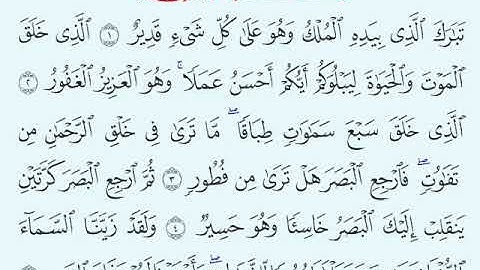 تَبَٰرَكَ ٱلَّذِى بِيَدِهِ ٱلْمُلْكُ وَهُوَ عَلَىٰ كُلِّ شَىْءٍ قَدِيرٌ ١ ٱلَّذِى خَلَقَ
ٱلْمَوْتَ وَٱلْحَيَوٰةَ لِيَبْلُوَكُمْ أَيُّكُمْ أَحْسَنُ عَمَلًا ۚ وَهُوَ ٱلْعَزِيزُ ٱلْغَفُورُ ٢
ٱلَّذِى خَلَقَ سَبْعَ سَمَٰوَٰتٍ طِبَاقًا ۖ مَّا تَرَىٰ فِى خَلْقِ ٱلرَّحْمَٰنِ مِن
تَفَٰوُتٍ ۖ فَٱرْجِعِ ٱلْبَصَرَ هَلْ تَرَىٰ مِن فُطُورٍ ٣ ثُمَّ ٱرْجِعِ ٱلْبَصَرَ كَرَّتَيْنِ
يَنقَلِبْ إِلَيْكَ ٱلْبَصَرُ خَاسِئًا وَهُوَ حَسِيرٌ ٤ وَلَقَدْ زَيَّنَّا ٱلسَّمَآءَ